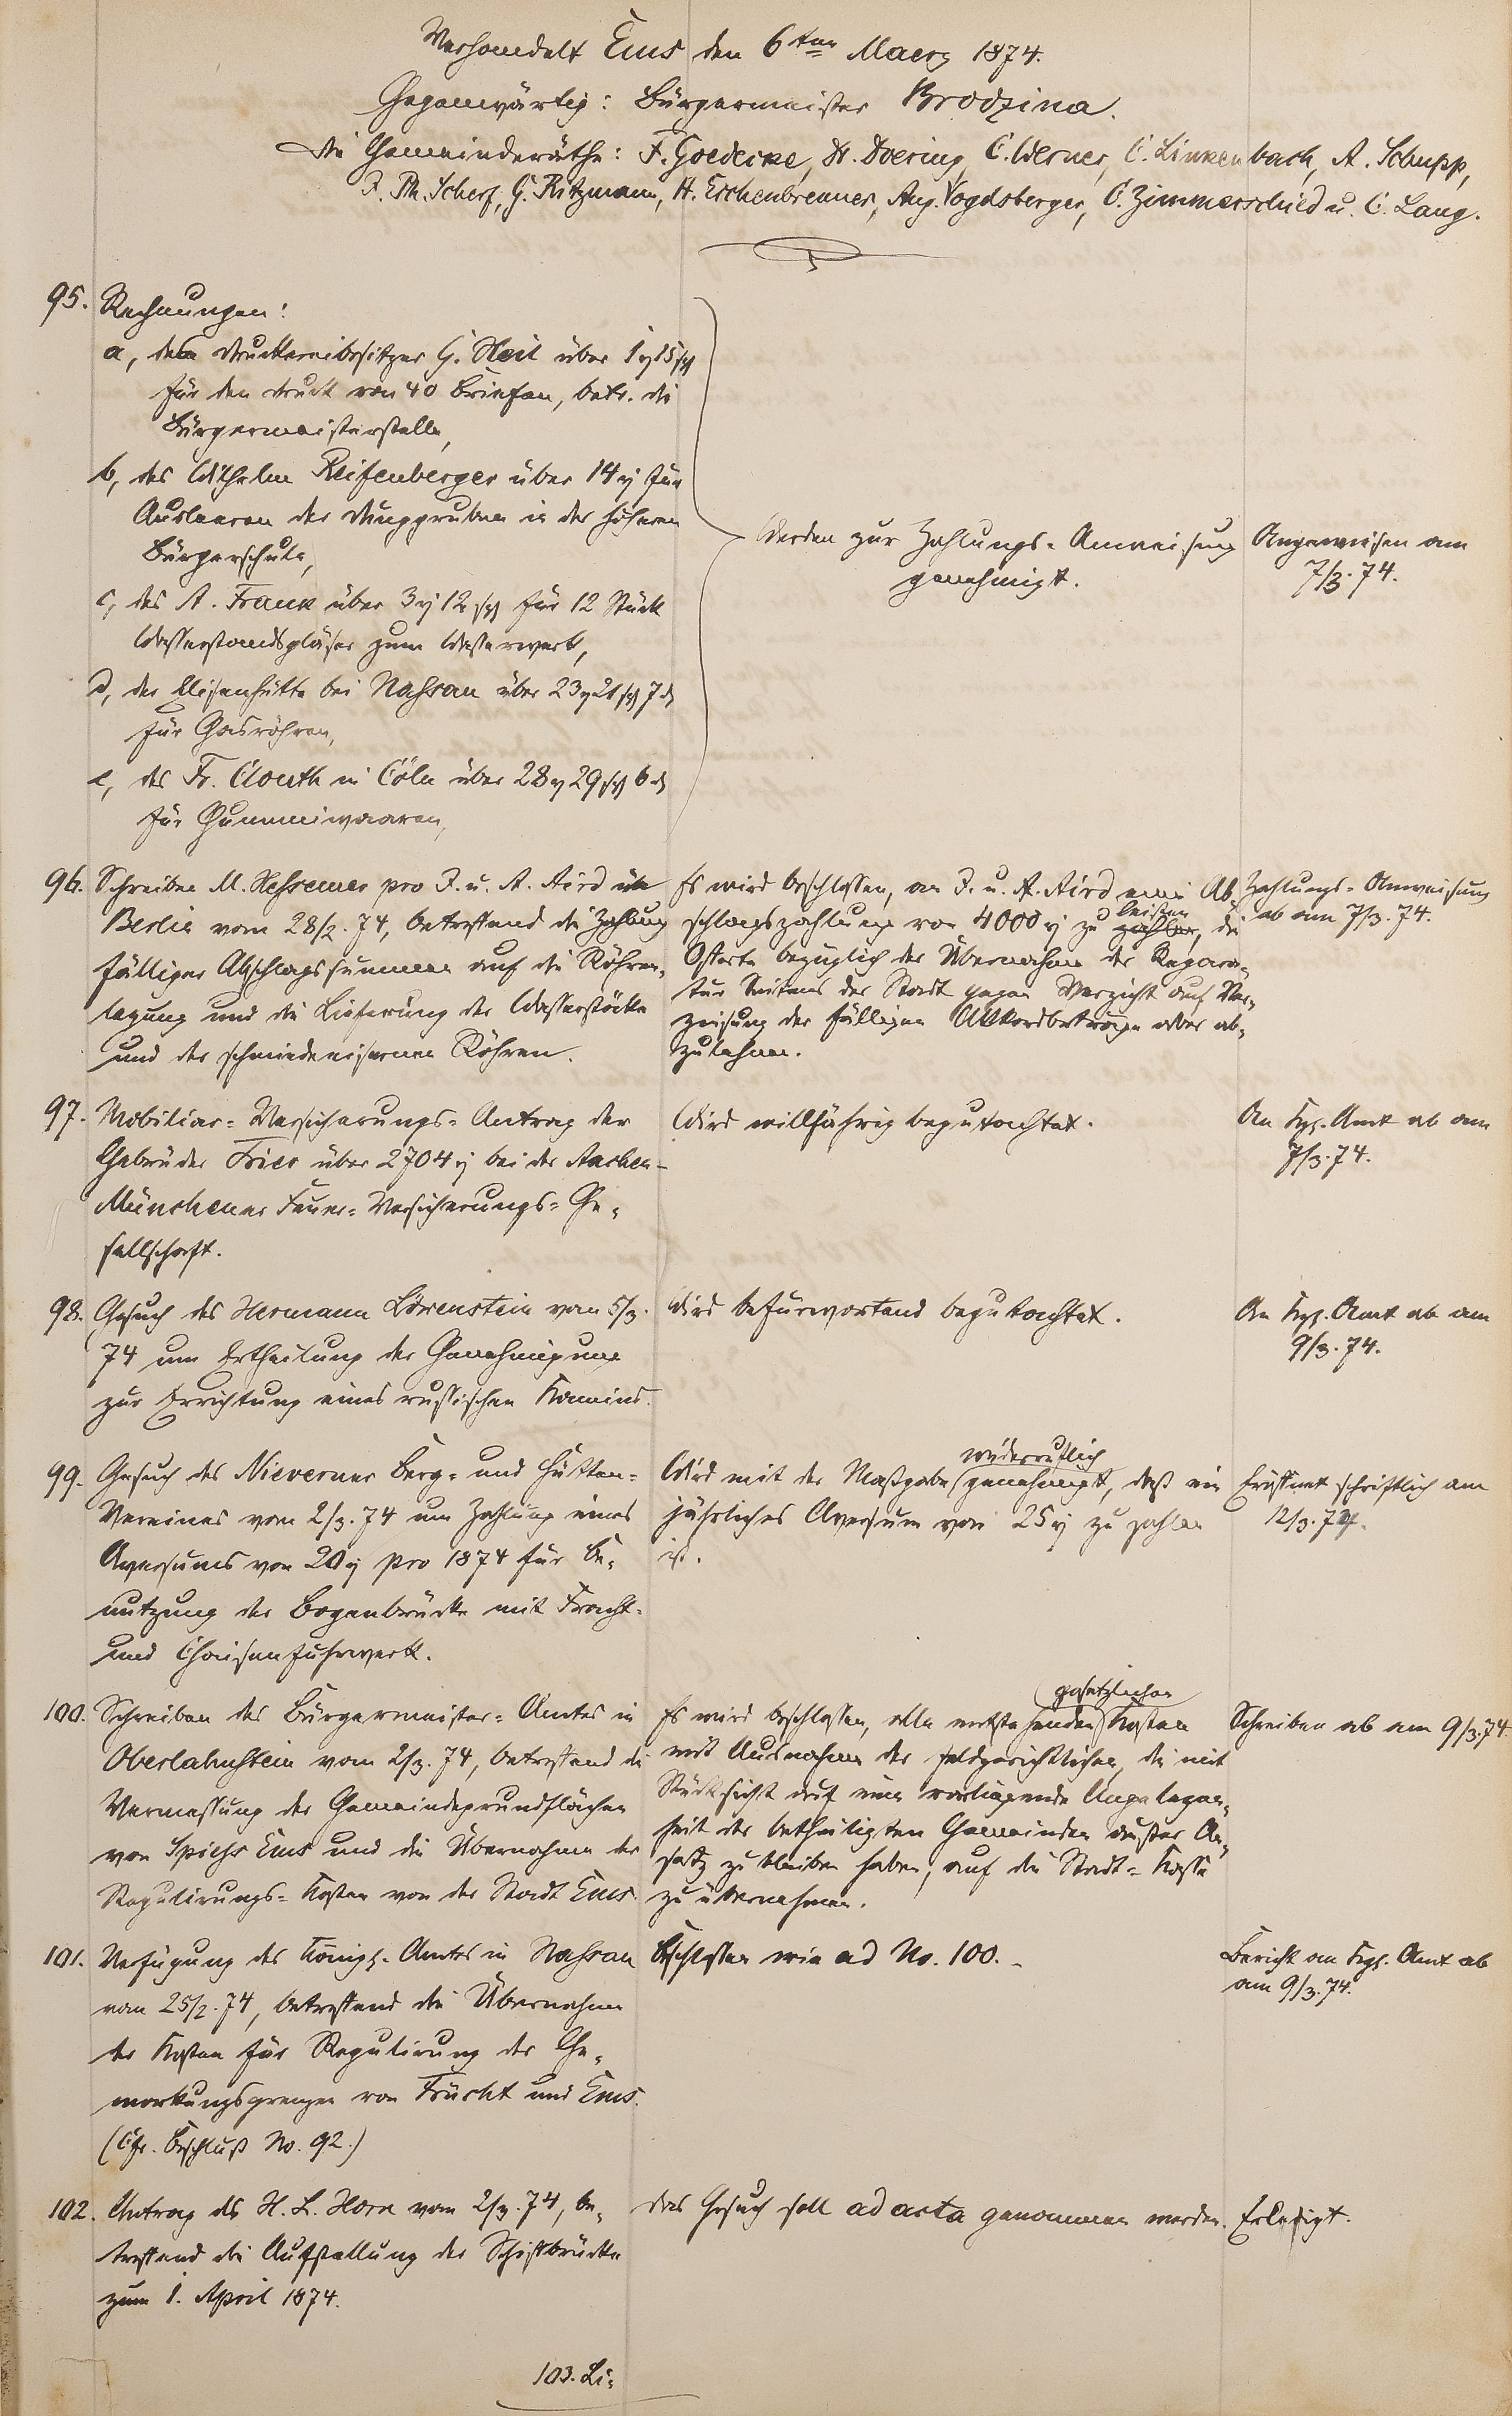 Verhandelt Ems den 6ten Maerz 1874.
Gegenwärtig: Bürgermeister Brodzina.
Die Gemeinderäthe: F. Goedecke, Dr. Doering, C. Werner, C. Linkenbach, A. Schupp,
F. Ph. Scherf, G. Ritzmann, H. Eschenbrenner, Aug. Vogelsberger, C. Zimmerschied u. C. Lang.
95. Rechnungen:
a, des Druckereibesitzer G. Heil über 1 15 sg
für den Druck von 40 Briefen, betr. die
Bürgermeisterstelle,
b, des Wilhelm Reifenberger über 14 für
Ausleeren der Dunggruben in der höheren
Bürgerschule,
c, des A. Frank über 3 12 sg für 12 Stück
Wasserstandsgläser zum Wasserwerk,
d, der Elisenhütte bei Nassau über 23 21 sg 7 d
für Gasröhren,
e, des Fr. Clouth in Cöln über 28 29 sg 6 d
für Gummiwaaren,
Werden zur Zahlungs-Anweisung
genehmigt.
Angewiesen am
7/3. 74.
96. Schreiben M. Hessemer pro J. u. A. Aird in
Berlin vom 28/2. 74, betreffend die Zahlung
fälliger Abschlagssummen auf die Röhren-
legung und die Lieferung der Wasserstöcke
und der schmiedeeisernen Röhren.
Es wird beschlossen, an J. u. A. Aird eine Ab-
schlagszahlung von 4000 zu zahlen leisten, die
Offerte bezüglich der Übernahme der Repara-
tur Seitens der Stadt gegen Verzicht auf Ver-
zinsung der fälligen Akkordbeträge aber ab-
zulehnen.
Zahlungs-Anweisung
ab am 7/3. 74.
97. Mobiliar-Versicherungs-Antrag der
Gebrüder Trier über 2704 bei der Aachen-
Münchener Feuer-Versicherungs-Ge-
sellschaft.
Wird willfährig begutachtet.
An Kgl. Amt ab am
7/3. 74.
98. Gesuch des Hermann Löwenstein vom 5/3.
74 um Ertheilung der Genehmigung
zur Errichtung eines russischen Kamins.
Wird befürwortend begutachtet.
An Kgl. Amt ab am
9/3. 74.
99. Gesuch des Nieverner Berg- und Hütten-
Vereines vom 2/3. 74 um Zahlung eines
Aversums von 20 pro 1874 für Be-
nutzung der Bogenbrücke mit Fracht-
und Chaisenfuhrwerk.
Wird mit der Maßgabe widerruflich genehmigt, daß ein
jährliches Aversum von 25 zu zahlen
ist.
Eröffnet schriftlich am
12/3. 74.
100. Schreiben des Bürgermeister-Amtes in
Oberlahnstein vom 2/3. 74, betreffend die
Vermessung der Gemeindegrundflächen
von Spiess Ems und die Übernahme der
Regulirungs-Kosten von der Stadt Ems.
Es wird beschlossen, alle entstehenden gesetzlichen Kosten
mit Ausnahme der feldgerichtlichen, die mit
Rücksicht auf eine vorliegende Angelegen-
heit der betheiligten Gemeinden außer An-
satz zu bleiben haben, auf die Stadt-Kasse
zu übernehmen.
Schreiben ab am 9/3. 74.
101. Verfügung des Königl. Amtes in Nassau
vom 25/2. 74, betreffend die Übernahme
der Kosten für Regulirung der Ge-
markungsgrenzen von Frücht und Ems.
(Cfr. Beschluß No. 92.)
Beschlossen wie ad No. 100.
Bericht an Kgl. Amt ab
am 9/3. 74.
102. Antrag des H. L. Horn vom 2/3. 74, be-
treffend die Aufstellung der Schiffbrücke
zum 1. April 1874.
Das Gesuch soll ad acta genommen werden.
Erledigt.
103. Li-